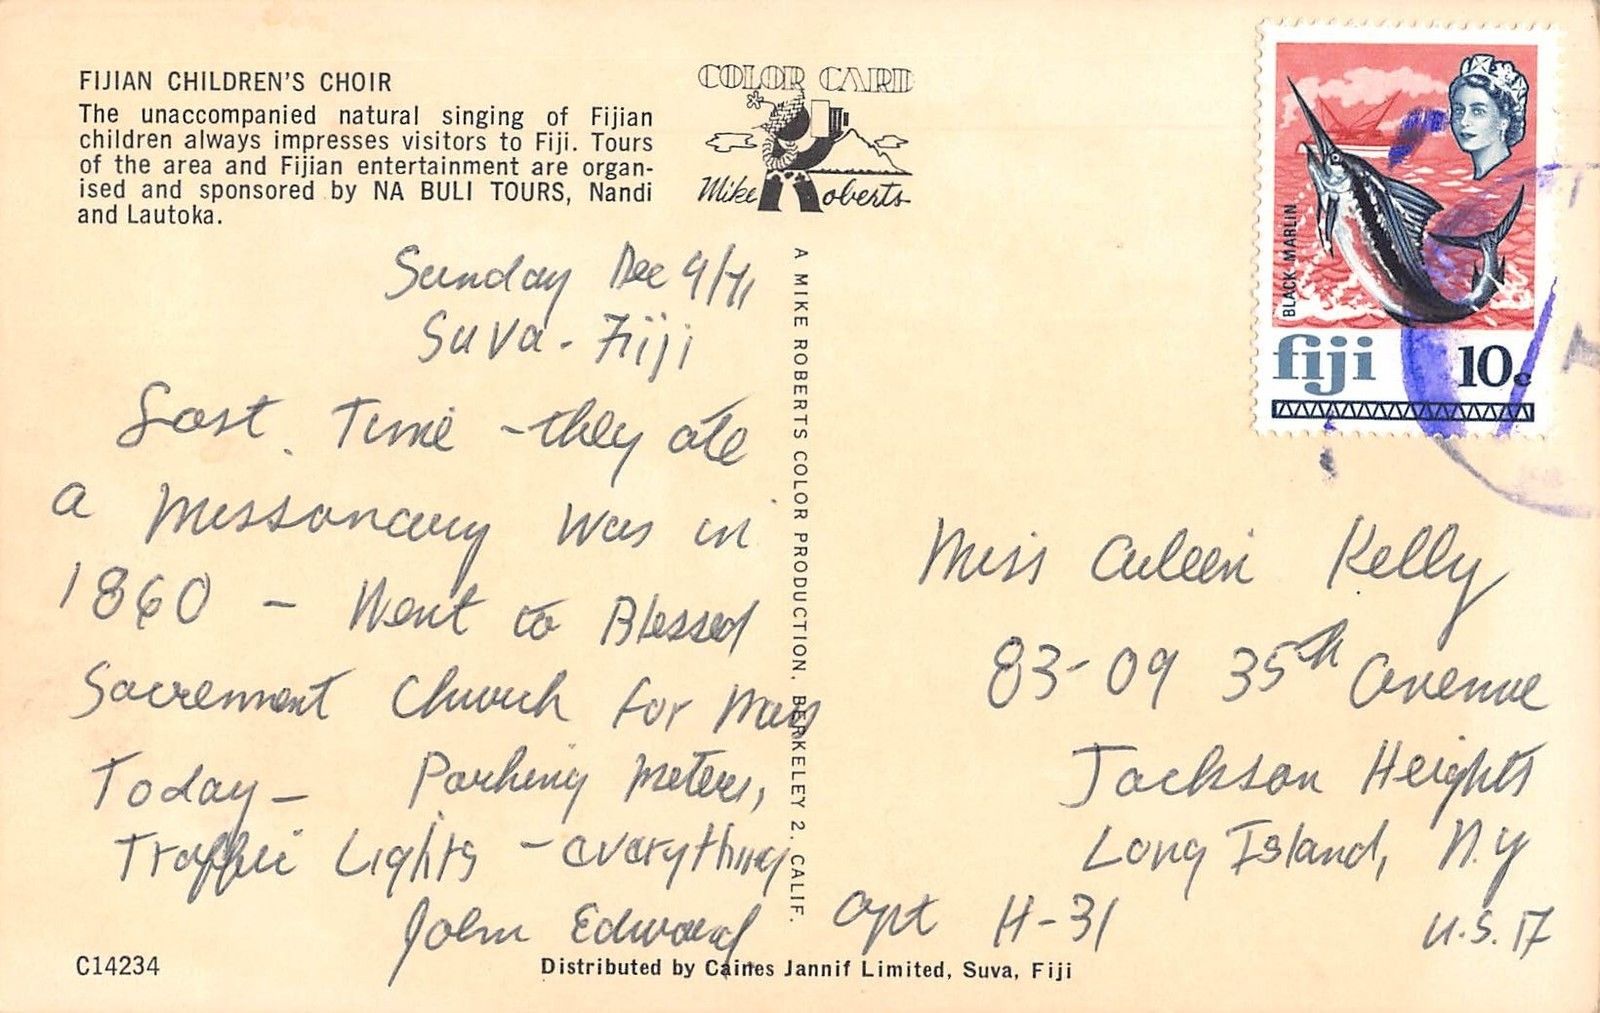 FIJIAN CHILDREN'S CHOIR
The unaccompanied natural singing of Fijian
children always impresses visitors to Fiji. Tours
of the area and Fijian entertainment are organ-
ised and sponsored by NA BULI TOURS, Nandi
and Lautoka.
COLOR CARD
Mike Roberts
BLACK MARLIN
fiji 10c
A MIKE ROBERTS COLOR PRODUCTION, BERKELEY 2, CALIF.
Sunday Dec
Suva - Fiji
Last Time - they ate
a Missonary was in
1860 - Went to Blessed
Sacrement Church for Mass
Today - Parking Meters,
Traffic Lights - everything
John Edward
Miss Aileen Kelly
83-09 35th Avenue
Jackson Heights
Long Island, N.Y
Apt H-31 U.S.A
C14234
Distributed by Caines Jannif Limited, Suva, Fiji